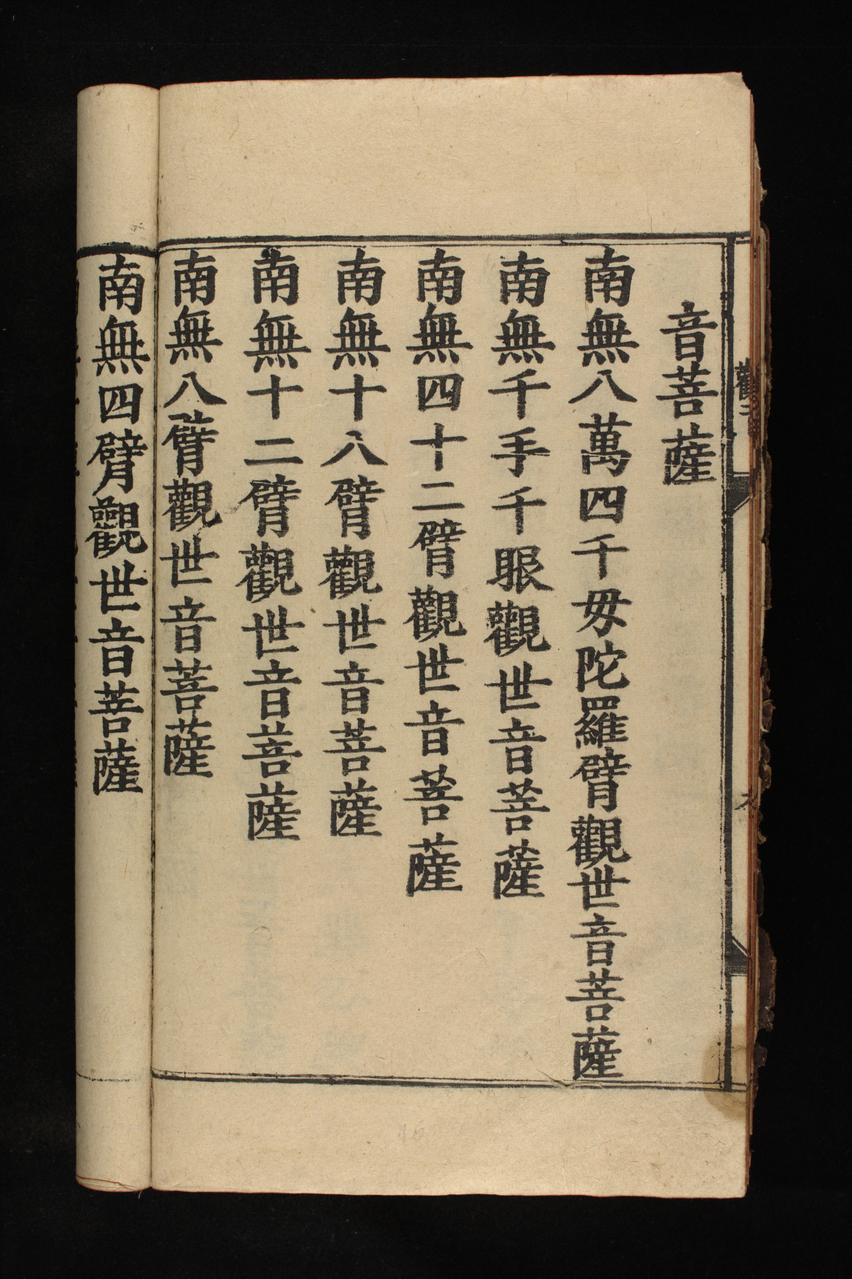 音菩薩
南無八萬四千毋陀羅臂觀世音菩薩
南無千手千眼觀世音菩薩
南無四十二臂觀世音菩薩
南無十八臂觀世音菩薩
南無十二臂觀世音菩薩
南無八臂觀世音菩薩
南無四臂觀世音菩薩